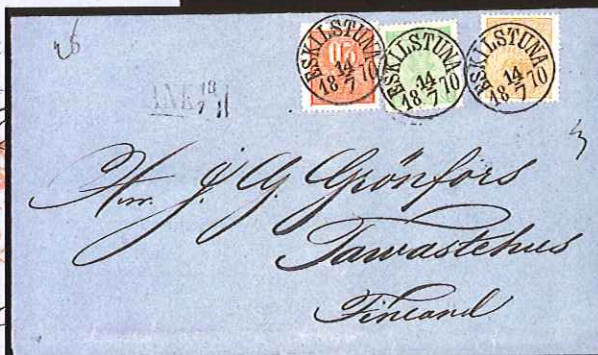 26
20
ESKILSTUNA
14
18 7 70
ESKILSTUNA
14
18 7 70
ESKILSTUNA
14
18 7 70
ANK
Hrr. J. G. Grönfors
Tawastehus
Finland